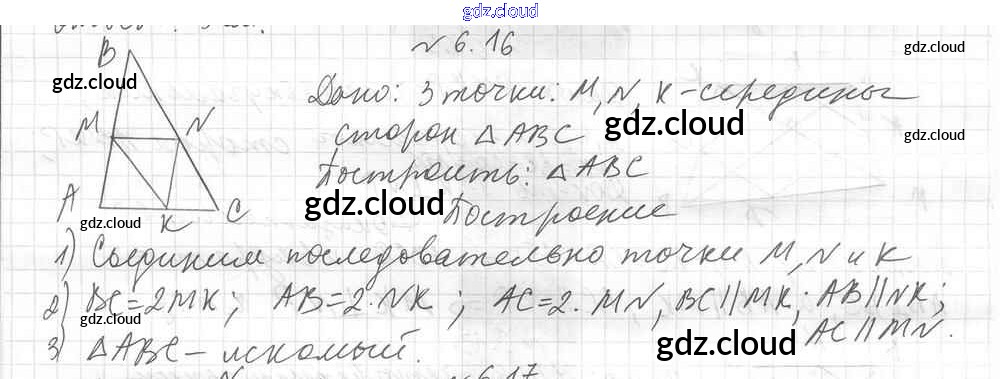 gdz.cloud
№ 6.16
gdz.cloud
B
gdz.cloud
Дано: 3 точки: M, N, K - середины
M N
сторон △ ABC
gdz.cloud
gdz.cloud
Построить: △ ABC
A K C
gdz.cloud
gdz.cloud
Построение
1) Соединим последовательно точки M, N и K
2) BC = 2MK; AB = 2·NK; AC = 2·MN, BC || MK; AB || NK;
gdz.cloud
AC || MN.
3) △ABC - искомый.
gdz.cloud
№ 6.17